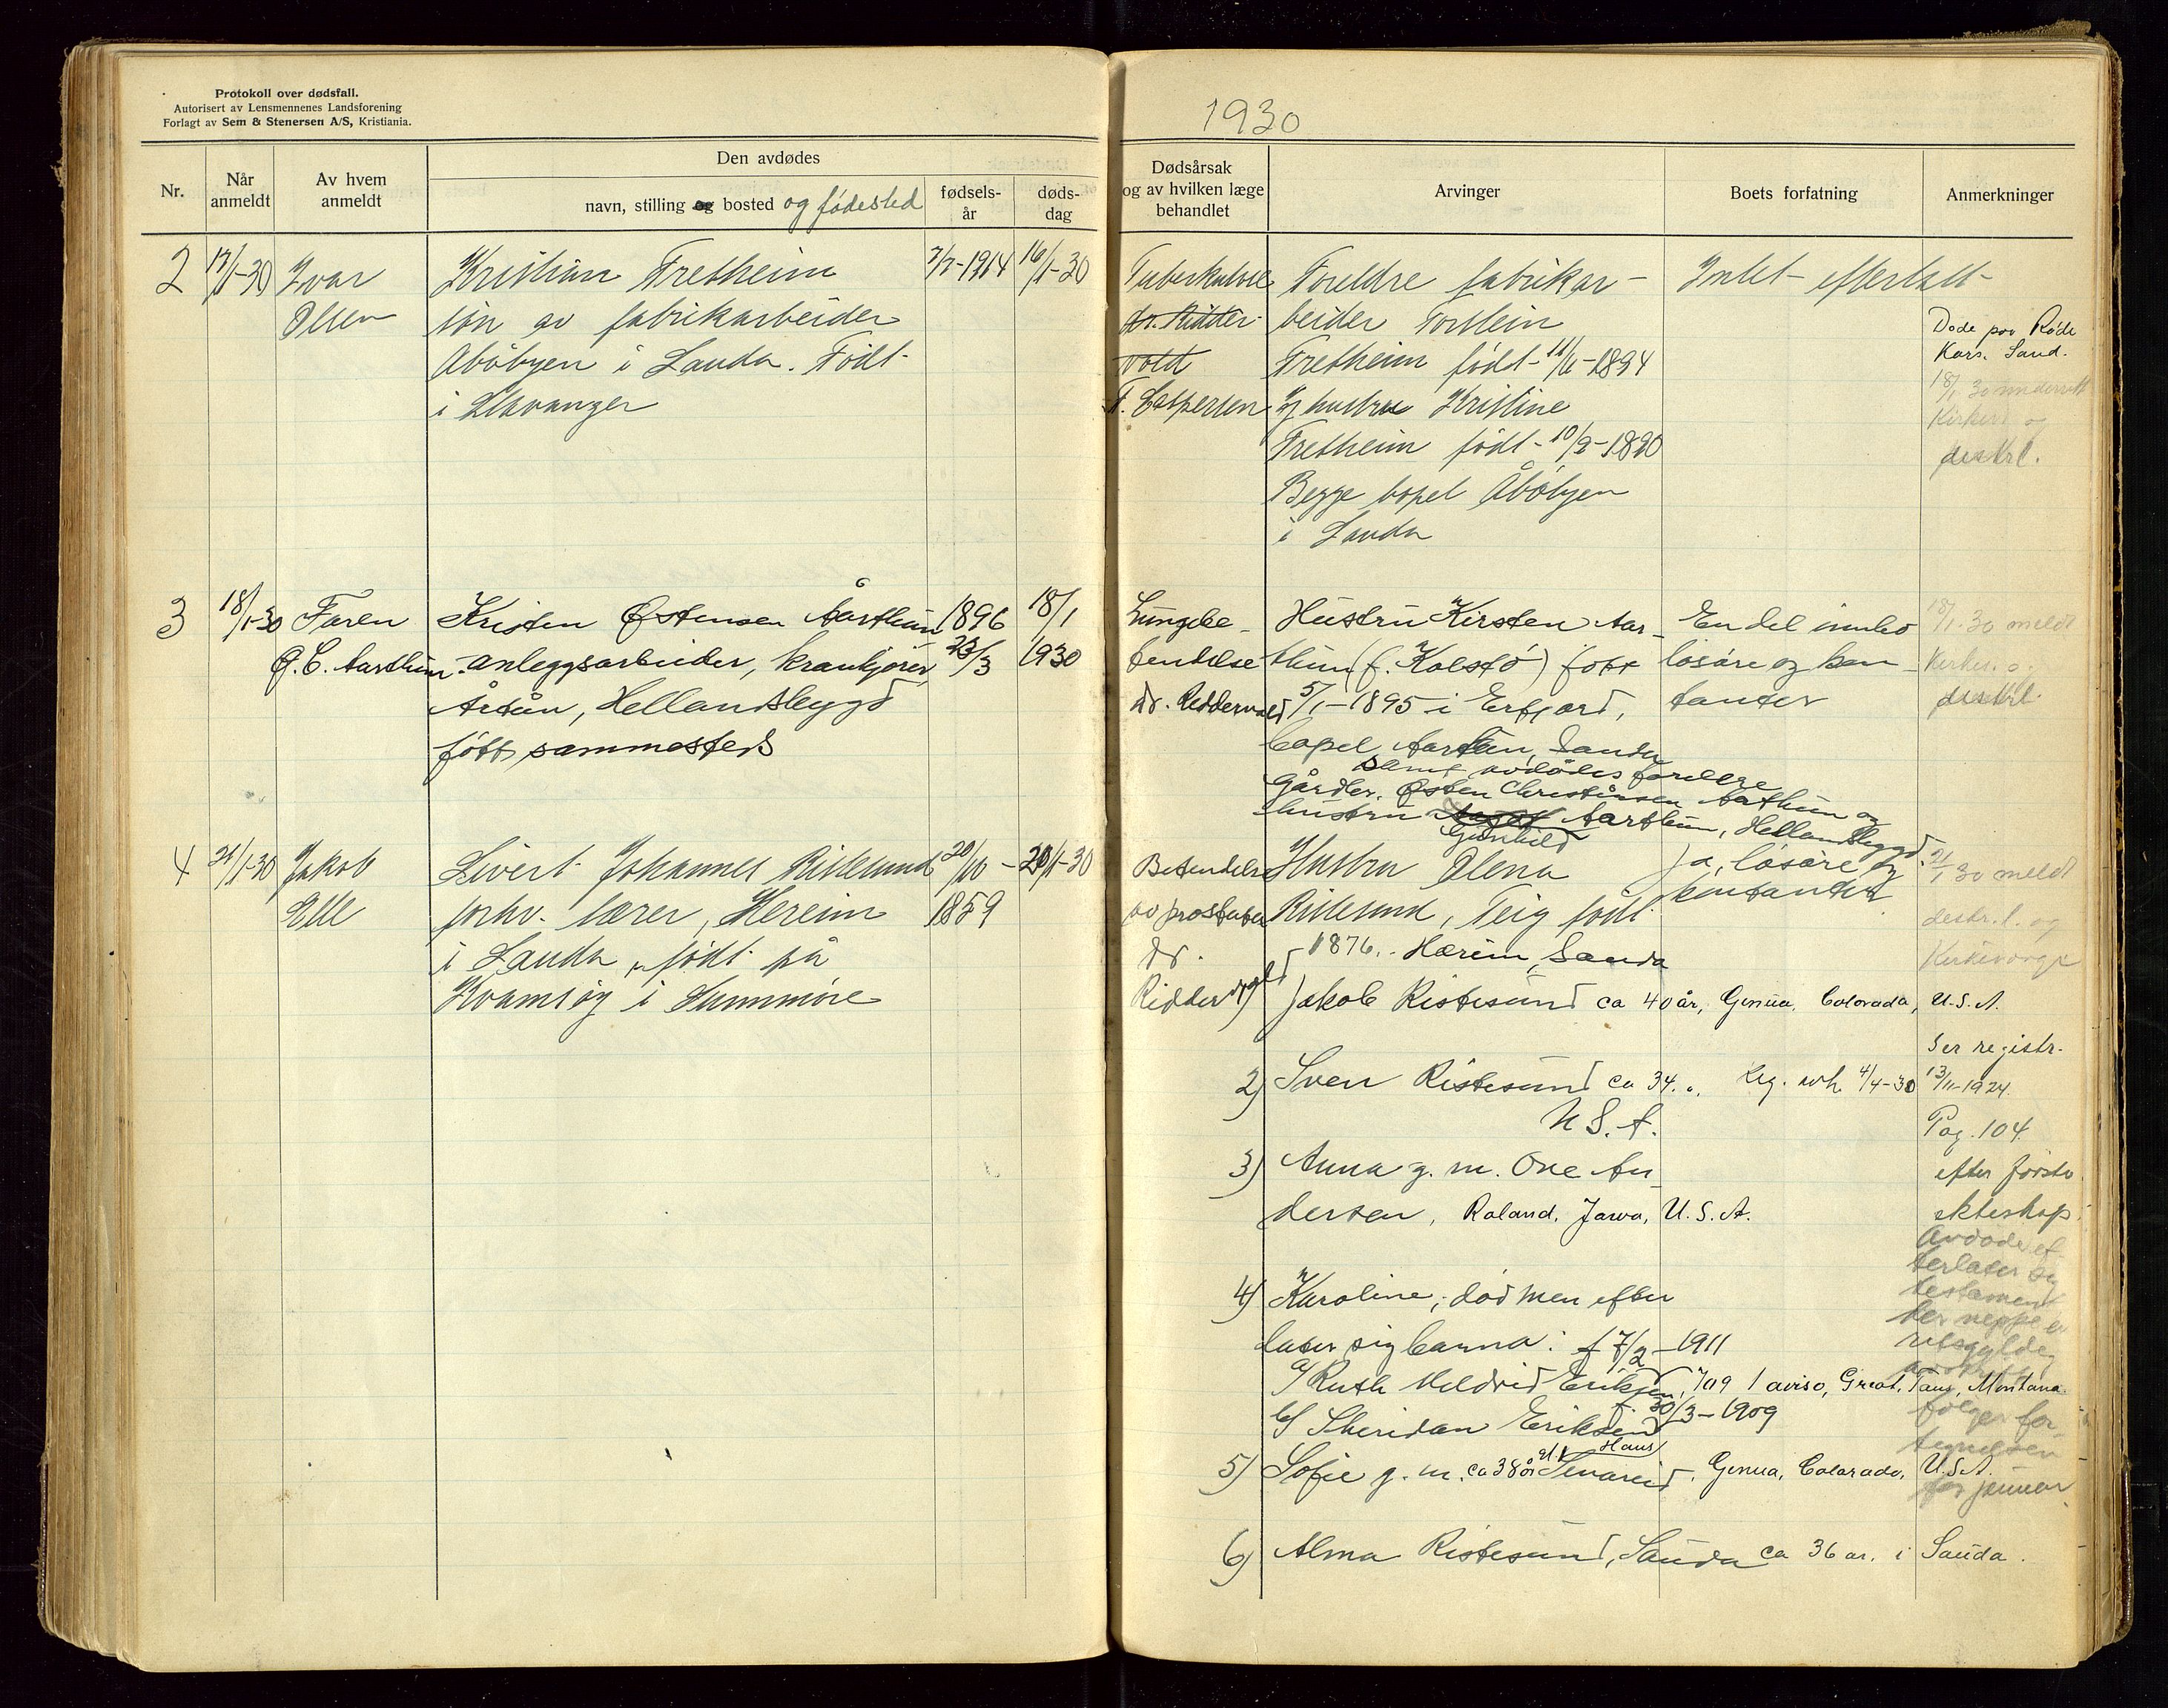 Protokoll over dødsfall.
Autorisert av Lensmennenes Landsforening
Forlagt av Sem & Stenersen A/S, Kristiania.
1930
Nr.
Når anmeldt
Av hvem anmeldt
Den avdødes
navn, stilling og bosted og fødested
fødsels-år
døds-dag
Dødsårsak og av hvilken læge behandlet
Arvinger
Boets forfatning
Anmerkninger
2
17/1-30
Ivar
Olsen
Kristian Fretheim
søn av fabrikarbeider
Åbøbyen i Sauda. Født
i Stavanger
1914
16/1-30
Tuberkulose
dr. Ridder-
vold
T. Caspersen
Foreldre fabrikar-
beider Torstein
Fretheim født 11/6-1894
og hustru Kristine
Fretheim født 10/9-1890
Begge bopel Åbøbyen
i Sauda
Intet efterlatt
Døde paa Røde
Kors. Saud.
18/1 30 underrett
Kirkev. og
distrl.
3
18/1-30
Faren
Ø. C. Aarthun
Kristen Østensen Aarthun
anleggsarbeider, krankjører
Årtun, Hellandsbygd
født sammesteds
1896
23/3
18/1
1930
Lungebe-
tendelse
dr. Riddervold
Hustru Kirsten Aar-
thun (f. Kolstø) født
5/1-1895 i Erfjord,
bopel Aarthun, Sauda
samt avdødes foreldre
Gårdbr. Østen Christensen Aarthun og
hustru Aarthun, Hellandsbygd.
Gunhild
En del innbo
løsøre og kon-
tanter
18/1-30 meldt
Kirkev. og
distrl.
4
21/1-30
Jakob
Elle
Sivert Johannes Ristesund
forhv. lærer, Hereim
i Sauda, født på
Kvamsøy i Sunnmøre
20/10-
1859
20/1-30
Betendelse
av prostata
dr.
Riddervold
Hustru Olena
Ristesund, Teig født
1876. Hæreim, Sauda
Ja, løsøre og
kontanter
21/1 30 meldt
distr.l. og
Kirkeverge
1) Jakob Ristesund ca 40 år, Genua, Colorado, U.S.A.
Ser registr.
2) Sven Ristesund ca 34. Reg. 4/4-30 13/11-1924.
U.S.A.
Pag. 104
3) Anna g. m. Ove An-
efter første
dersen, Roland, Jowa, U.S.A.
ekteskap.
4) Karoline, død men efter
later sig barna: f 7/2-1911
a/ Ruth Meldrid Eriksen, 709 1 aviso, Great, Montana.
f. 30/3-1909
b/ Sheridan Eriksen
Hans
5) Sofie g. m. ca 38 år Sevareid, Genua, Colorado, U.S.A.
6) Alma Ristesund, Sauda ca 36 ar. i Sauda.
Avdøde ef-
terlater sig
testament
før januar